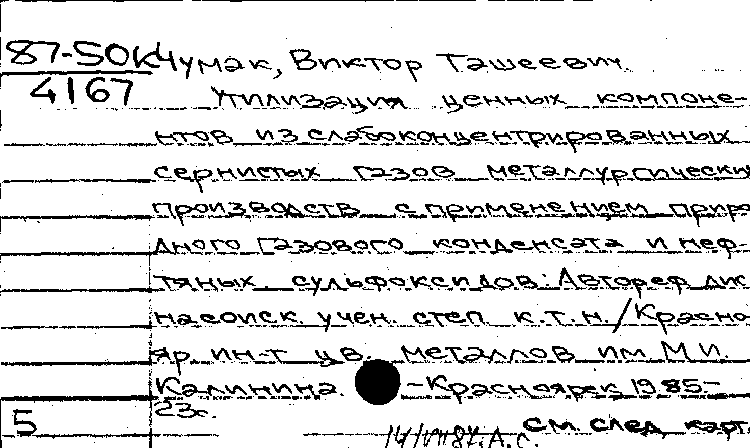 87-50к Чумак, Виктор Ташеевич.
4167 Утилизация ценных компоне-
нтов из слабоконцентрированных
сернистых газов металлургически
производств с применением приро
дного газового конденсата и неф-
тяных сульфоксидов: Автореф дис
на соиск. учен. степ к.т.н. / Красно
яр ин-т цв. металлов им М.И.
Калинина. -Красноярск, 1985-
23с.
5 см след карт.
14/VII 87. А.С.